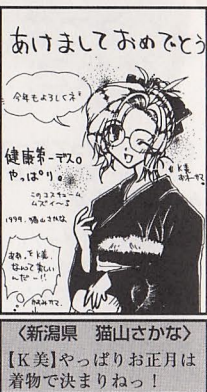 あけましておめでとう
今年もよろしくネ
健康第一デス。
やっぱり。
このコスチューム
ムズイ〜5
1999. 猫山さかな
K美
ああっK美、
なんて美しい
んだー!!
〈新潟県 猫山さかな〉
【K美】やっぱりお正月は
着物で決まりねっ！